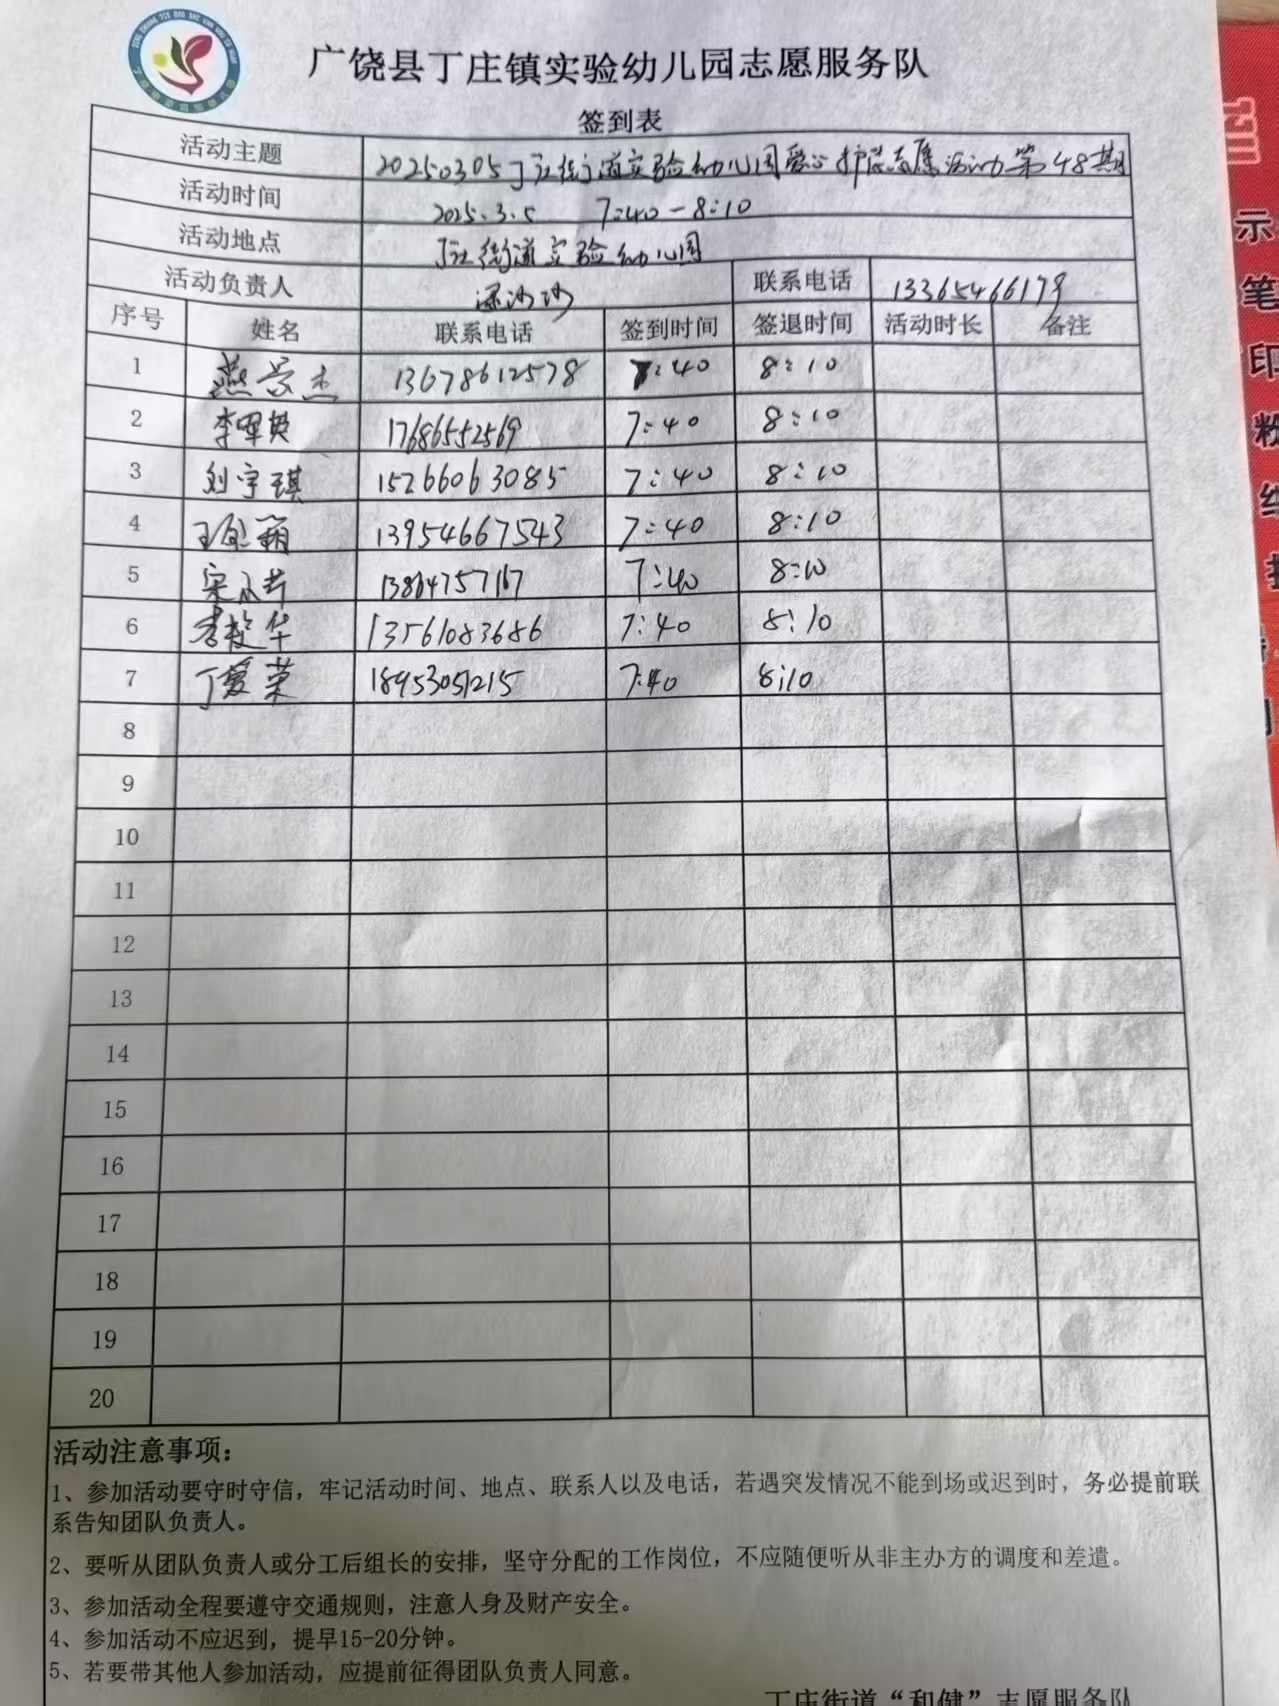 广饶县丁庄镇实验幼儿园志愿服务队
签到表
活动主题 20250305丁庄街道实验幼儿园爱心护学志愿活动第48期
活动时间 2025.3.5 7:40-8:10
活动地点 丁庄街道实验幼儿园
活动负责人 沙沙 联系电话 13365466179
序号 姓名 联系电话 签到时间 签退时间 活动时长 备注
1 燕 杰 13678612578 7:40 8:10
2 李军英 17686552569 7:40 8:10
3 刘宇琪 15266063085 7:40 8:10
4 王 颖 13954667543 7:40 8:10
5 宋 13864757167 7:40 8:10
6 李 华 13561083686 7:40 8:10
7 丁爱荣 18953051215 7:40 8:10
8
9
10
11
12
13
14
15
16
17
18
19
20
活动注意事项：
1、参加活动要守时守信，牢记活动时间、地点、联系人以及电话，若遇突发情况不能到场或迟到时，务必提前联
系告知团队负责人。
2、要听从团队负责人或分工后组长的安排，坚守分配的工作岗位，不应随便听从非主办方的调度和差遣。
3、参加活动全程要遵守交通规则，注意人身及财产安全。
4、参加活动不应迟到，提早15-20分钟。
5、若要带其他人参加活动，应提前征得团队负责人同意。
丁庄街道“和健”志愿服务队
示
笔
印
粉